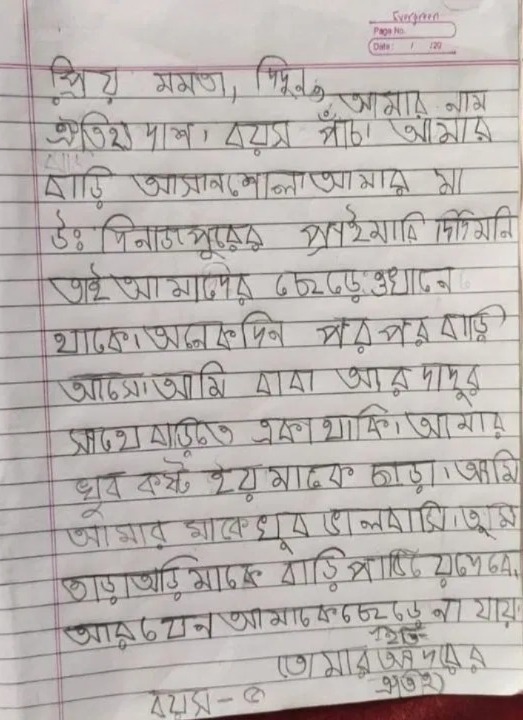 Evergreen
Page No.
Date: / /20
প্রিয় মমতা, দিদুন, আমার নাম
ঐতিহ্য দাশ। বয়স পাঁচ। আমার
বাড়ি আসানশোল।আমার মা
উঃ দিনাজপুরের প্রাইমারি দিদিমনি
তাই আমাদের ছেড়ে ওখানে
থাকে।অনেকদিন পর পর বাড়ি
আসে।আমি বাবা আর দাদুর
সাথে বাড়িতে একা থাকি। আমার
খুব কষ্ট হয় মাকে ছাড়া। আমি
আমার মাকে খুব ভালবাসি।তুমি
তাড়াতাড়ি মাকে বাড়ি পাঠিয়ে দেবে,
আর যেন আমাকে ছেড়ে না যায়।
ইতি-
তোমার আদরের
ঐতিহ্য
বয়স - ৫